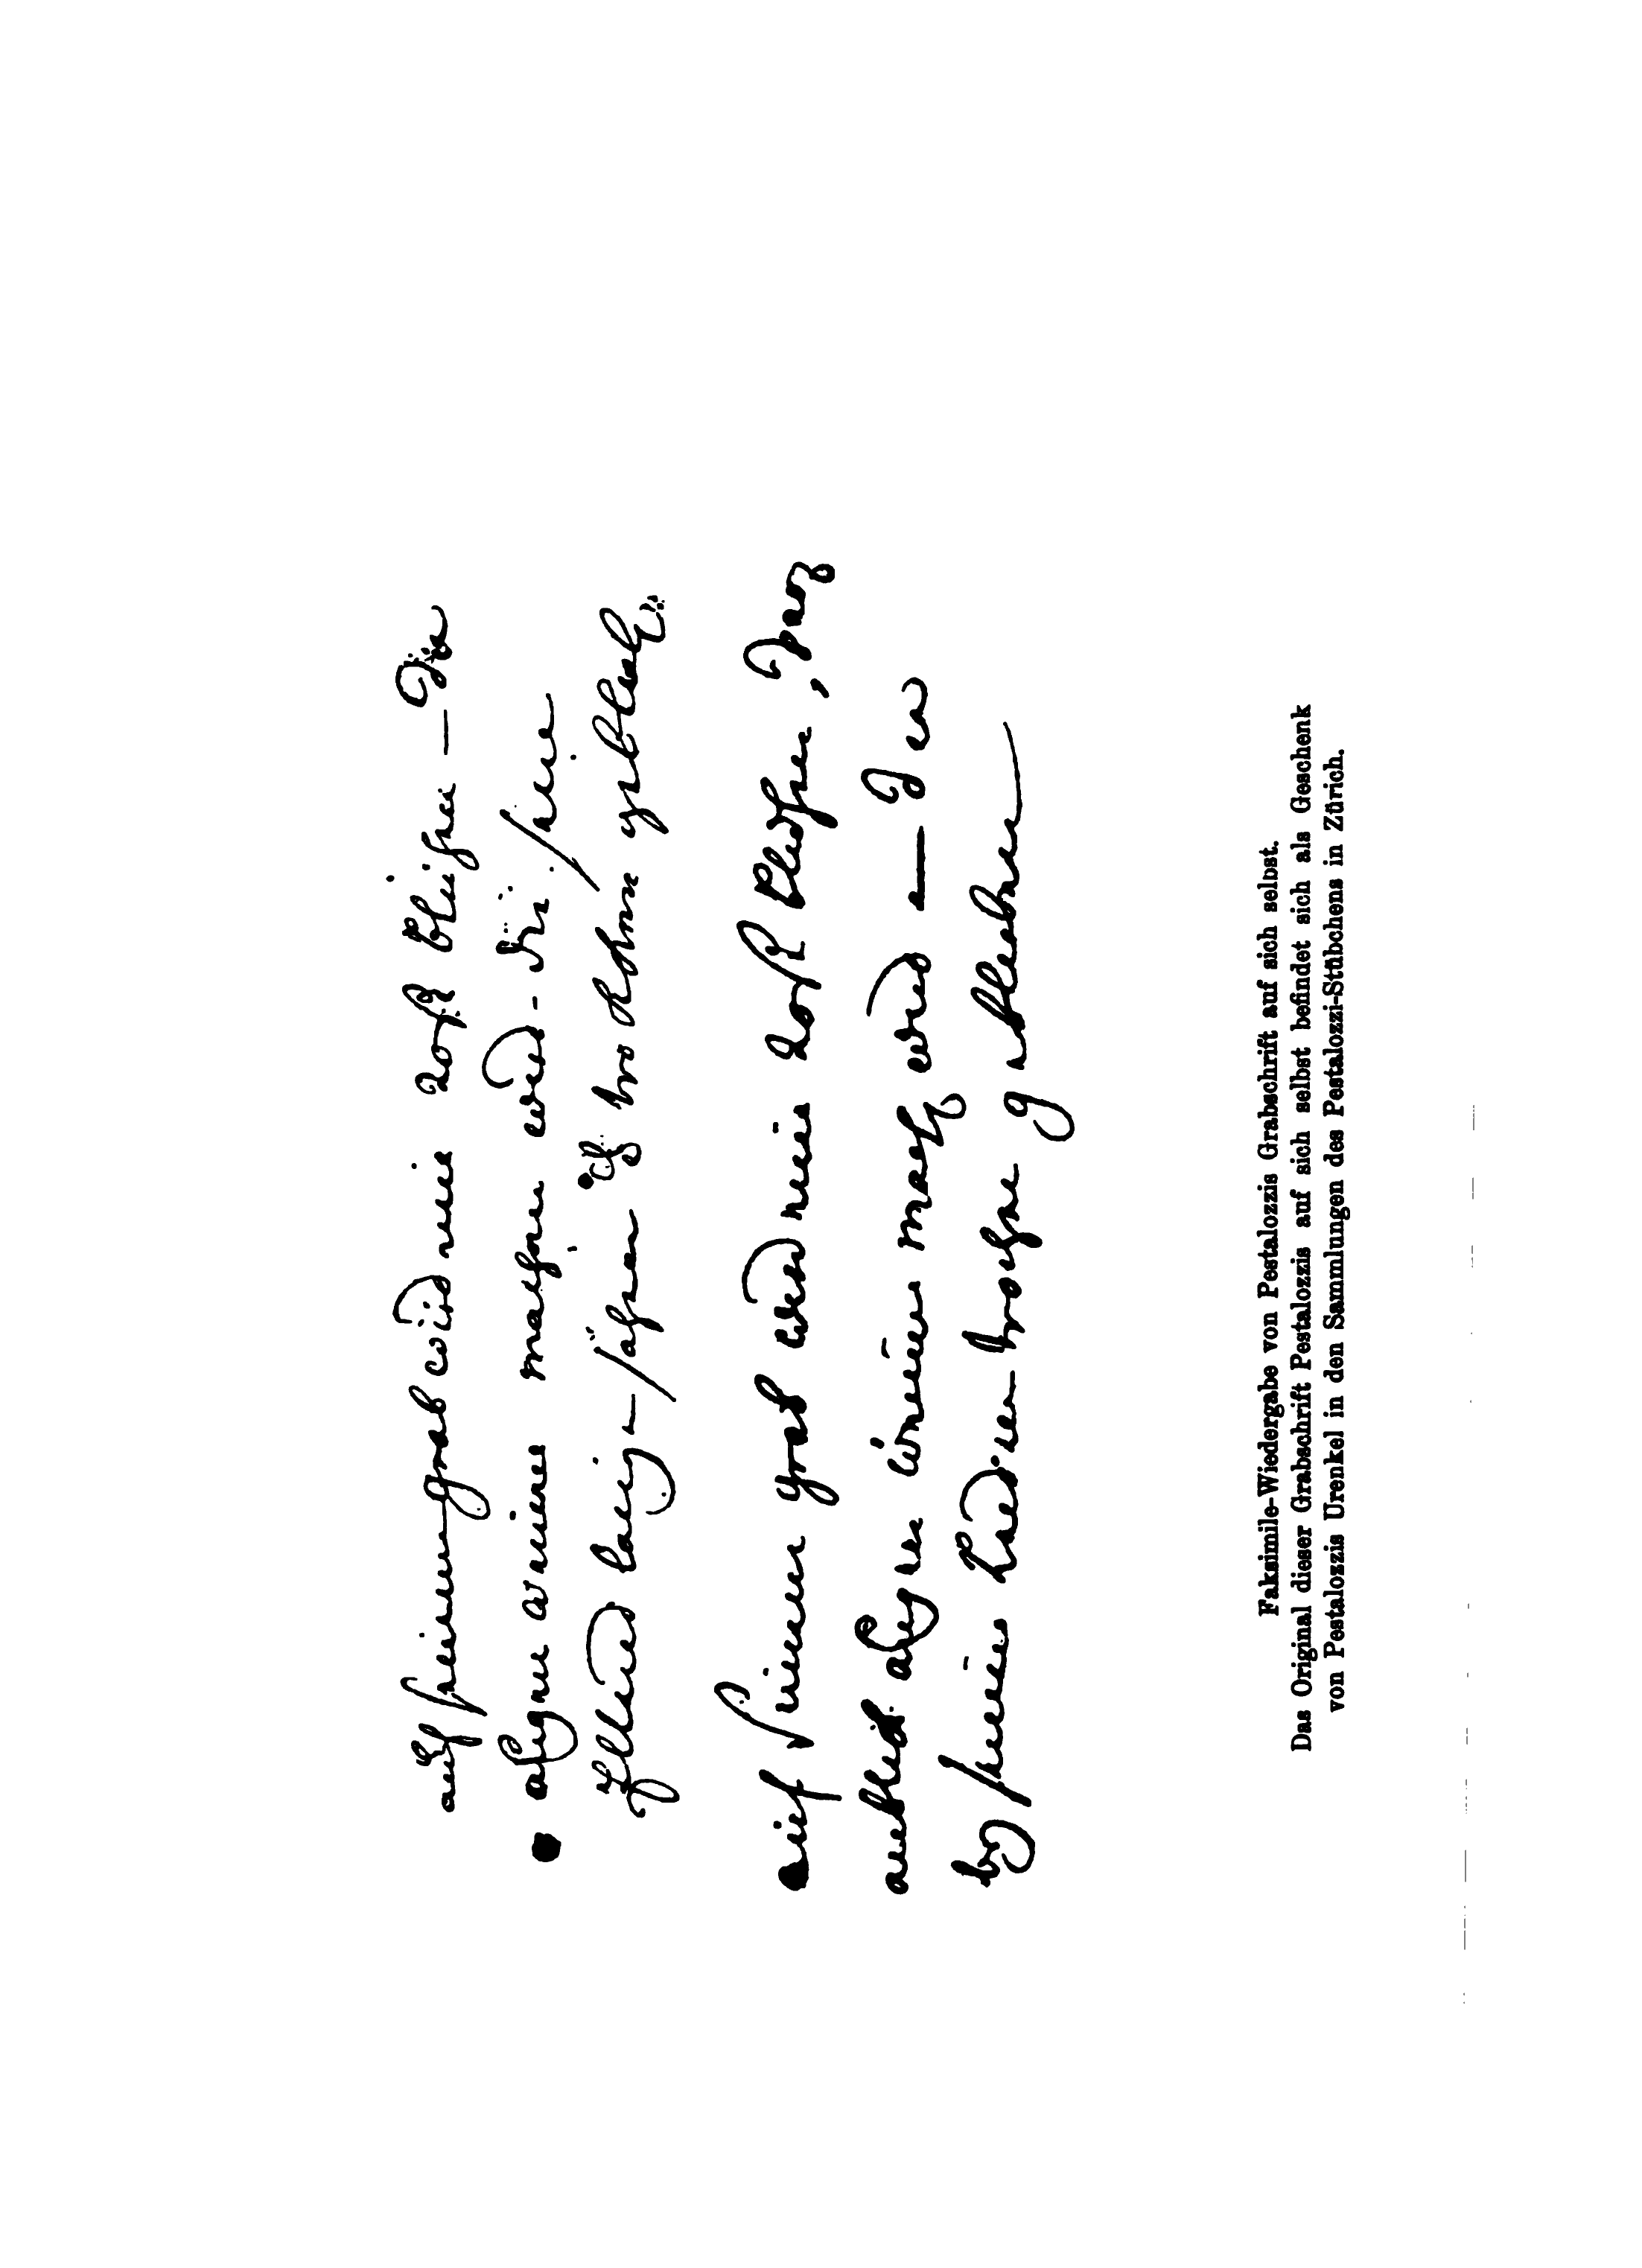 auf seinem grab wird eine rose blühen – die
augen weinen machen wird – die
lang – sahen troken
auf seinem grab wird eine rose bluhen,
anblik augen weinen mach wird – die
by seinem Leiden troken gebleiben
Faksimile-Wiedergabe von Pestalozzis Grabschrift auf sich selbst.
Das Original dieser Grabschrift Pestalozzis auf sich selbst befindet sich als Geschenk
von Pestalozzis Urenkel in den Sammlungen des Pestalozzi-Stübchens in Zürich.